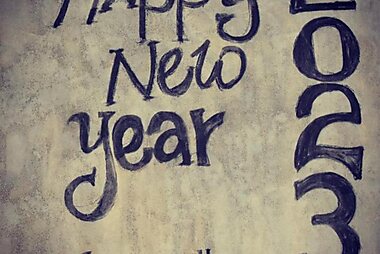 Happy
New
year
2023